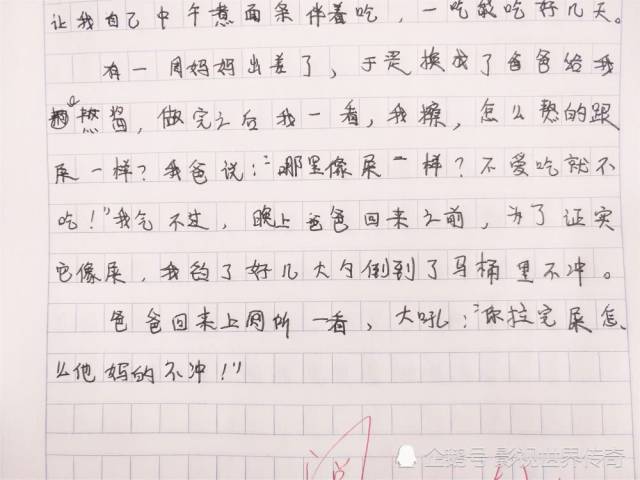 让我自己中午煮面条伴着吃，一吃就吃好几天。
有一周妈妈出差了，于是换成了爸爸给我
熬酱，做完之后我一看，我擦，怎么熬的跟
屎一样？我爸说：“哪里像屎一样？不爱吃就不
吃！”我气不过，晚上爸爸回来之前，为了证实
它像屎，我舀了好几大勺倒到了马桶里不冲。
爸爸回来上厕所一看，大吼：“你拉完屎怎
么他妈的不冲！”
企鹅号 影视世界传奇